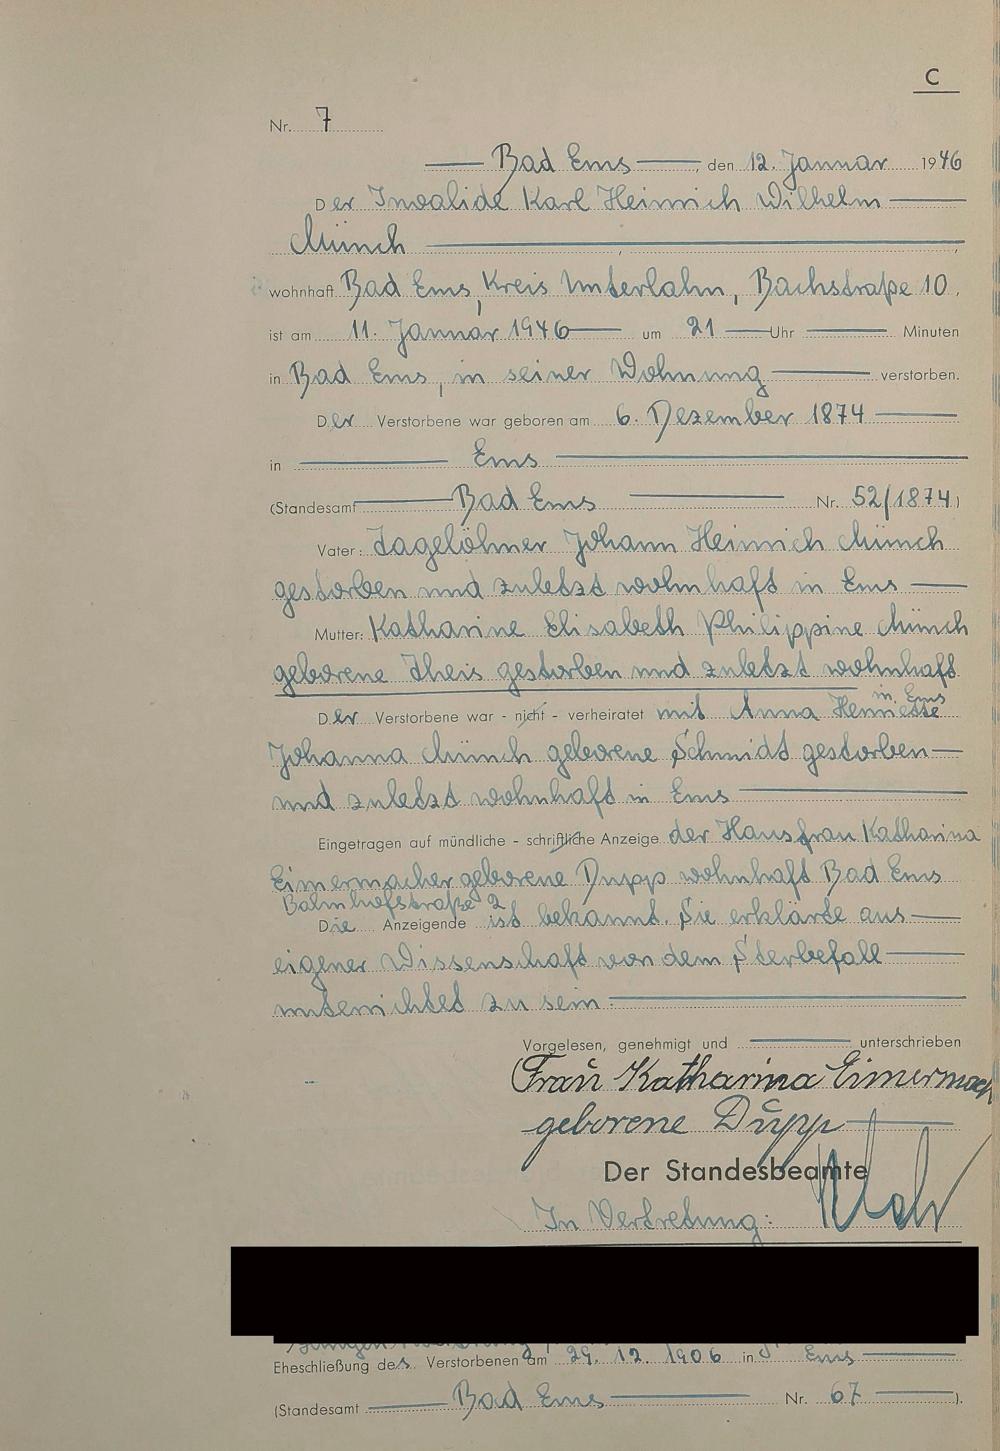 C
Nr. 7
Bad Ems, den 12. Januar 1946
Der Invalide Karl Heinrich Wilhelm
Münch,
wohnhaft Bad Ems, Kreis Unterlahn, Bachstraße 10,
ist am 11. Januar 1946 um 21 Uhr Minuten
in Bad Ems, in seiner Wohnung verstorben.
Der Verstorbene war geboren am 6. Dezember 1874
in Ems
(Standesamt Bad Ems Nr. 52/1874)
Vater: Tagelöhner Johann Heinrich Münch
gestorben und zuletzt wohnhaft in Ems
Mutter: Katharine Elisabeth Philippine Münch
geborene Theis gestorben und zuletzt wohnhaft
in Ems
Der Verstorbene war - nicht - verheiratet mit Anna Henriette
Johanna Münch geborene Schmidt gestorben
und zuletzt wohnhaft in Ems
Eingetragen auf mündliche - schriftliche Anzeige der Hausfrau Katharina
Eimermacher geborene Dupp wohnhaft Bad Ems
Bahnhofstraße 2
Die Anzeigende ist bekannt. Sie erklärte aus
eigener Wissenschaft von dem Sterbefall
unterrichtet zu sein.
Vorgelesen, genehmigt und unterschrieben
Frau Katharina Eimermach
geborene Dupp
Der Standesbeamte
In Vertretung:
Eheschließung des Verstorbenen am 29. 12. 1906 in Ems
(Standesamt Bad Ems Nr. 67).